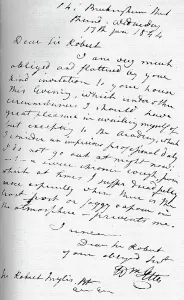 14 Buckingham Street
Strand, Wednesday
17th Jan 1854
Dear Sir Robert
I am very much
obliged and flattered by your
kind invitation to your house
this Evening, which under other
circumstances I should have
great pleasure in availing myself of
but excepting to the Academy, which
I consider an imperious professional duty
I do not go out at night
a severe chronic cough from
which at times I suffer dreadfully
more especially when there is the
least frost or foggy vapour in
the atmosphere prevents me.
I remain
Dear Sir Robert
your obliged Servt
W Etty
Sir Robert Inglis, Bt